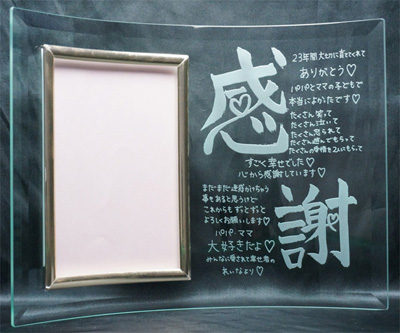 感謝
23年間大切に育ててくれて
ありがとう♡
パパとママの子どもで
本当によかったです♡
たくさん笑って
たくさん泣いて
たくさん怒られて
たくさん遊んでもらって
たくさんの愛情を2人にもらって
すごく幸せでした♡
心から感謝しています♡
まだまだ迷惑かけちゃう
事もあると思うけど
これからもずっとずっと
よろしくお願いします♡
パパ・ママ
大好きだよ♡
みんなに愛されて幸せ者の
より♡